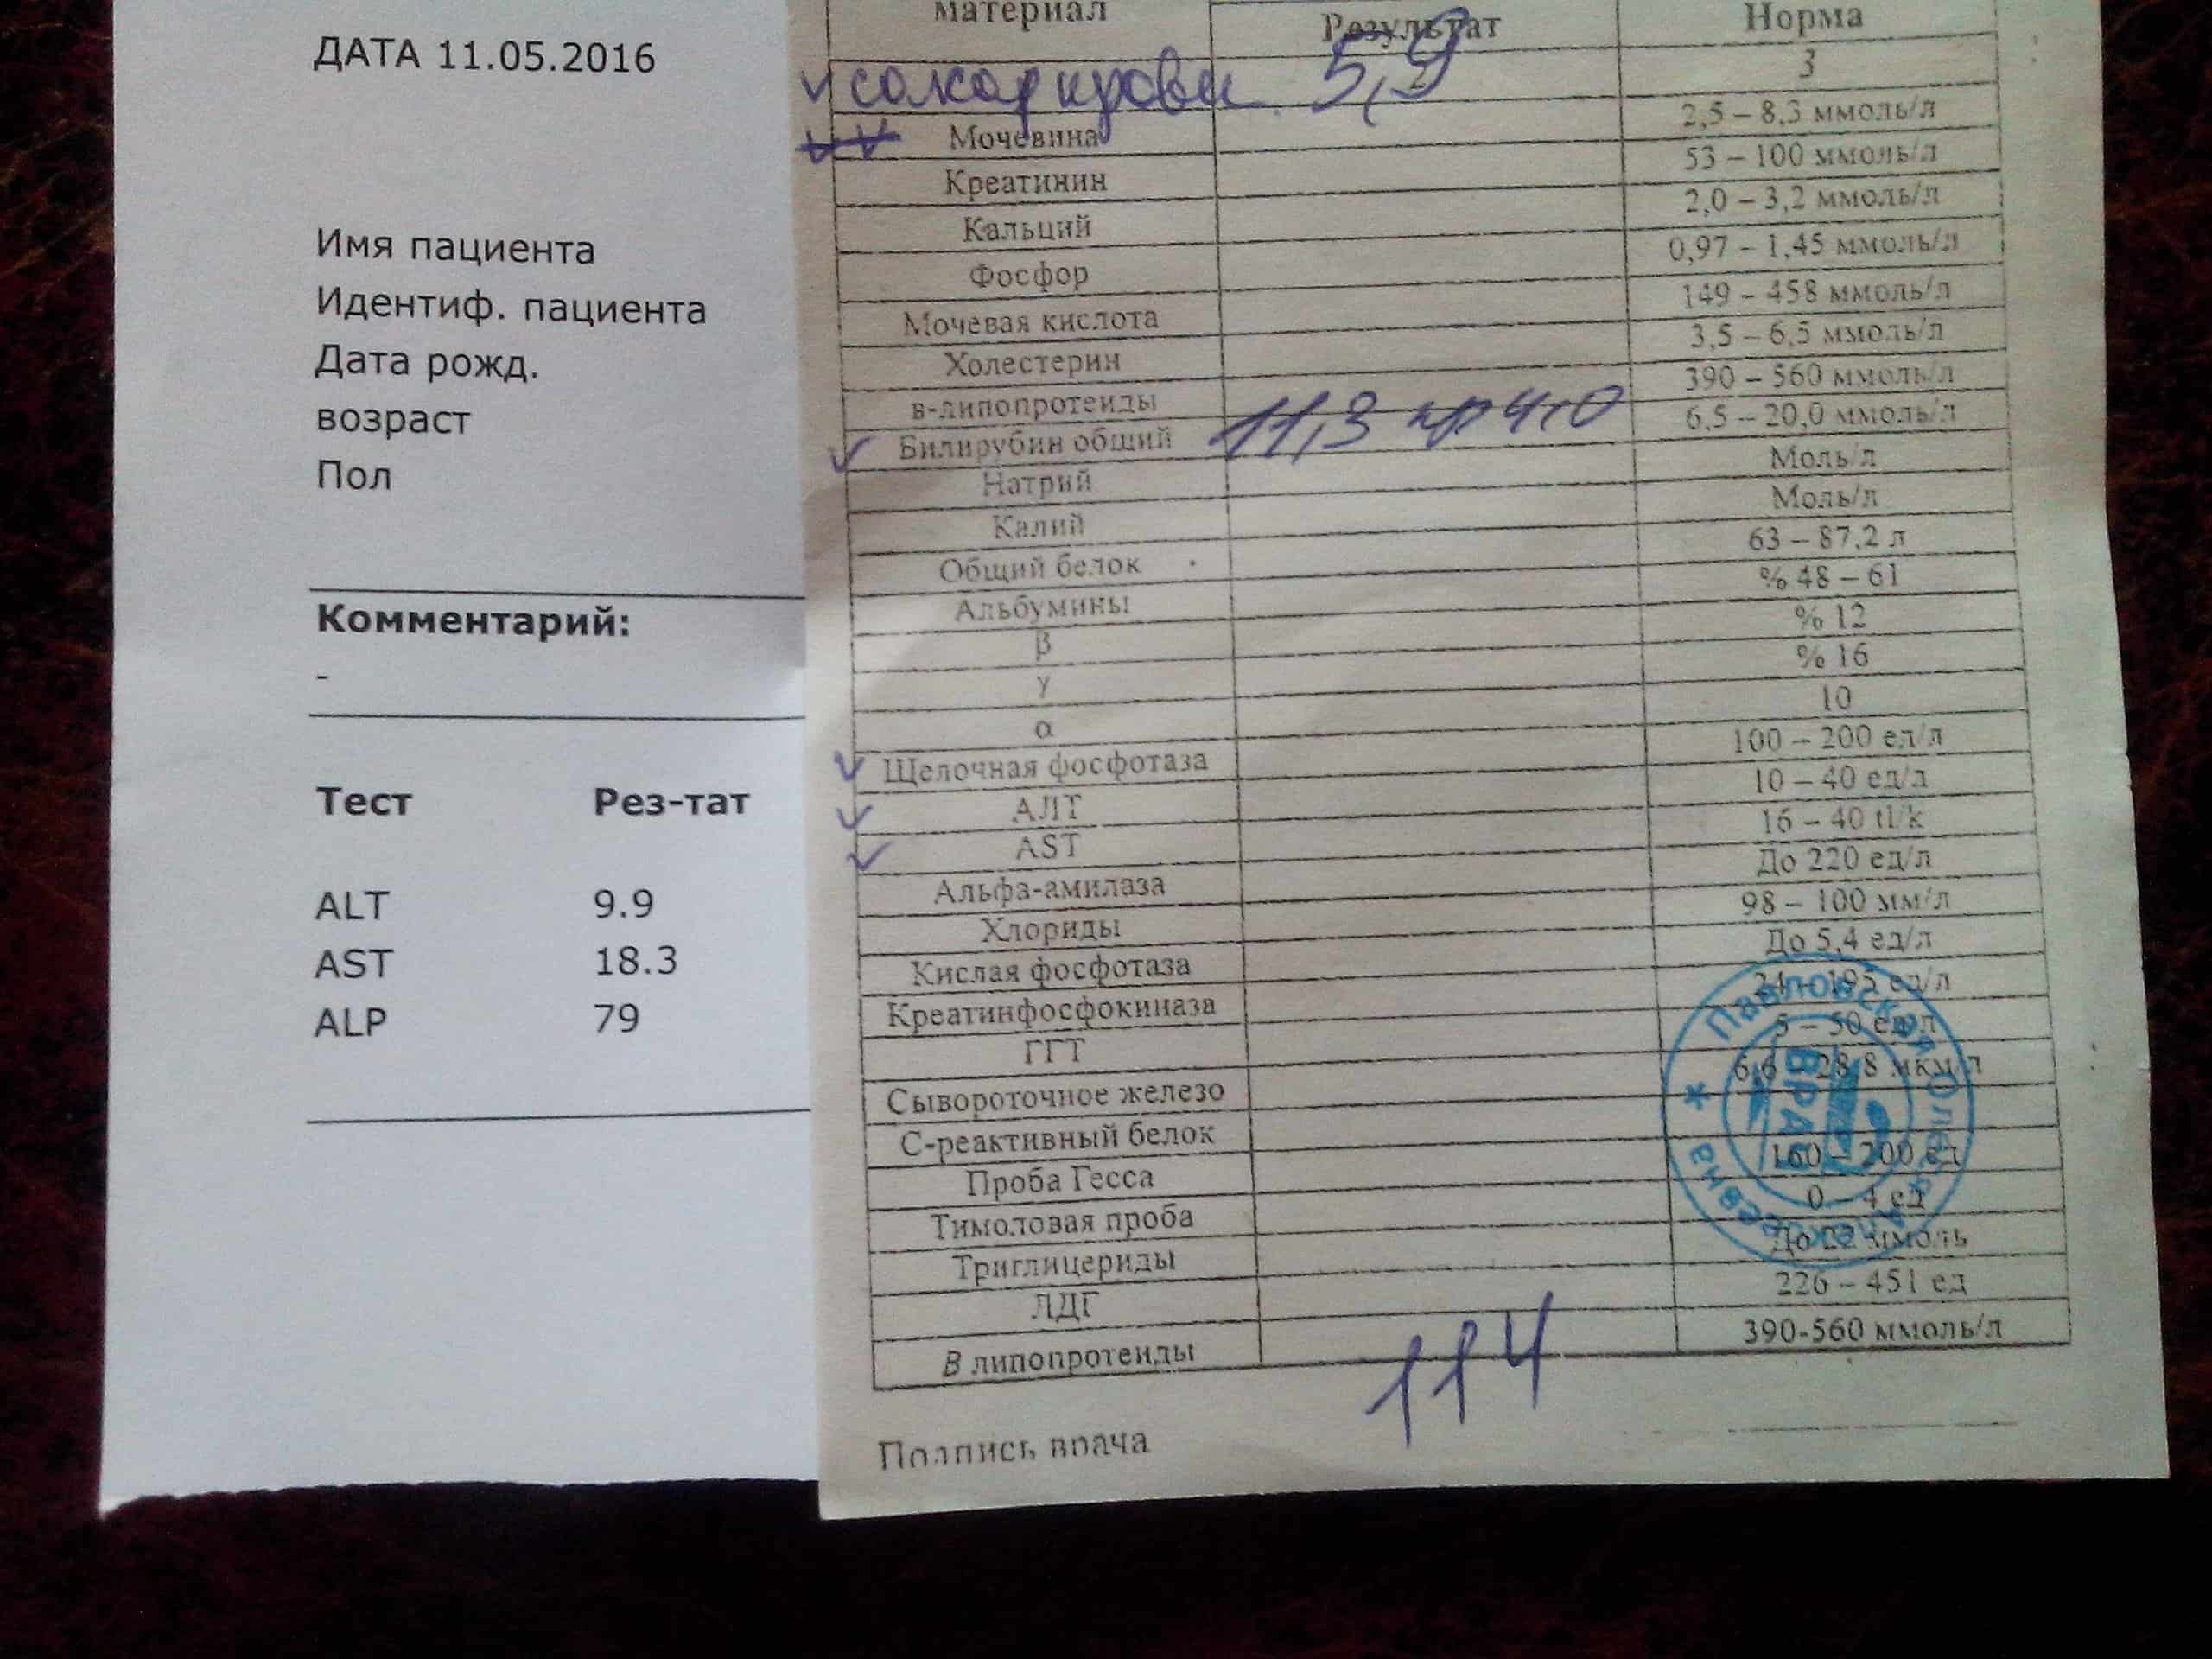 ДАТА 11.05.2016
Имя пациента
Идентиф. пациента
Дата рожд.
возраст
Пол
Комментарий:
-
Тест Рез-тат
ALT 9.9
AST 18.3
ALP 79
материал Результат Норма
3
сахар крови 5,9
Мочевина 2,5 – 8,3 ммоль/л
Креатинин 53 – 100 ммоль/л
Кальций 2,0 – 3,2 ммоль/л
Фосфор 0,97 – 1,45 ммоль/л
Мочевая кислота 149 – 458 ммоль/л
Холестерин 3,5 – 6,5 ммоль/л
в-липопротеиды 390 – 560 ммоль/л
Билирубин общий 11,3 пр 4,0 6,5 – 20,0 ммоль/л
Натрий Моль/л
Калий Моль/л
Общий белок 63 – 87,2 л
Альбумины % 48 – 61
β % 12
γ % 16
α 10
Щелочная фосфотаза 100 – 200 ед/л
АЛТ 10 – 40 ед/л
AST 16 – 40 tl/k
Альфа-амилаза До 220 ед/л
Хлориды 98 – 100 мм/л
Кислая фосфотаза До 5,4 ед/л
Креатинфосфокиназа 24 – 195 ед/л
ГГТ 5 – 50 ед/л
Сывороточное железо 6,6 – 28,8 мкм/л
С-реактивный белок
Проба Гесса 160 – 200 ед
Тимоловая проба 0 – 4 ед
Триглицериды До 22 ммоль
ЛДГ 226 – 451 ед
В липопротеиды 390-560 ммоль/л
114
Подпись врача
ВРАЧ